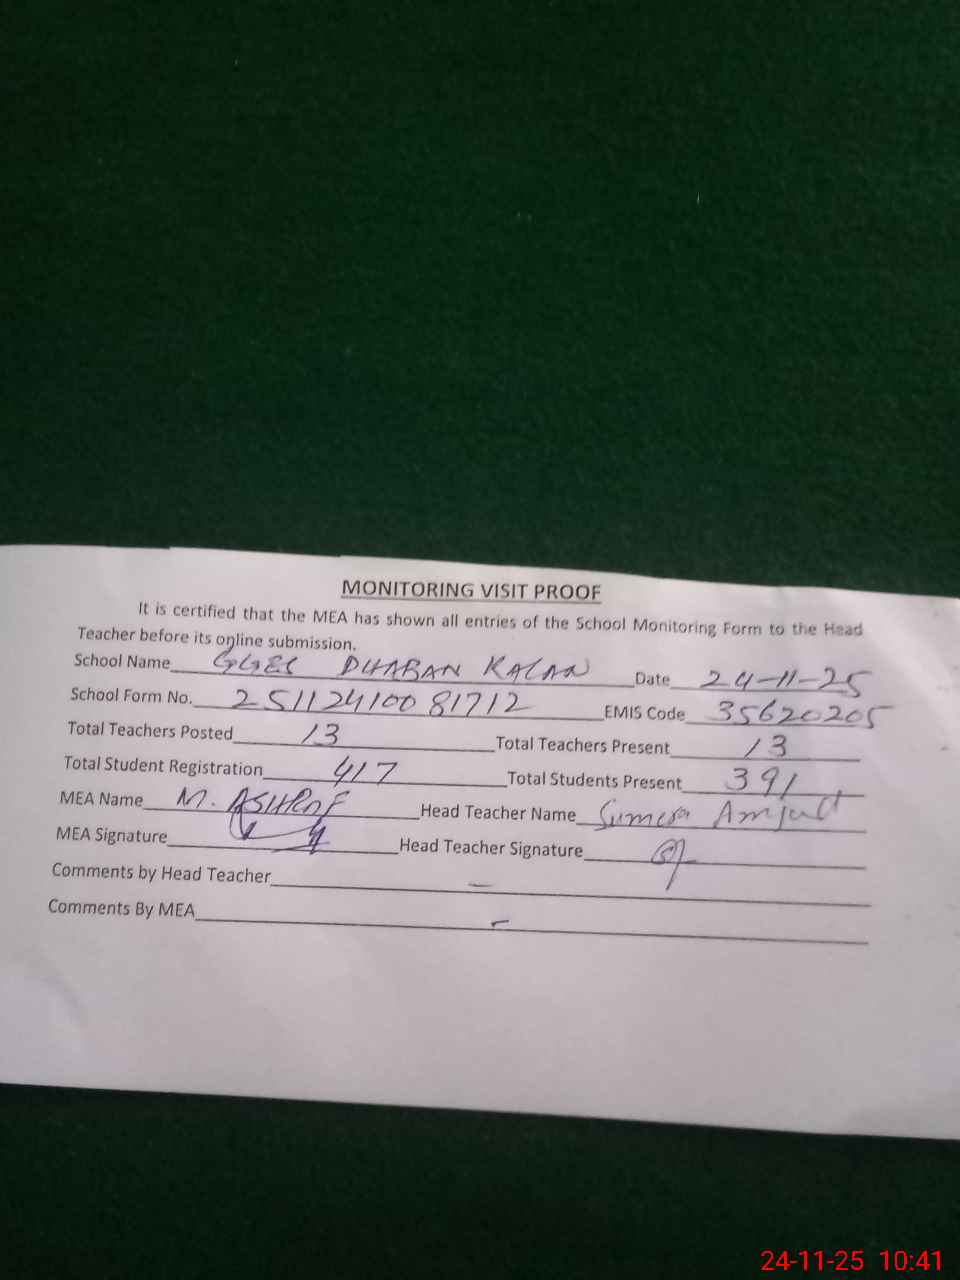 MONITORING VISIT PROOF
It is certified that the MEA has shown all entries of the School Monitoring Form to the Head
Teacher before its online submission.
School Name GGES DHABAN KALAN Date 24-11-25
School Form No. 25112410081712 EMIS Code 35620205
Total Teachers Posted 13 Total Teachers Present 13
Total Student Registration 417 Total Students Present 391
MEA Name M. ASHRAF Head Teacher Name Sumera Amjad
MEA Signature Head Teacher Signature
Comments by Head Teacher -
Comments By MEA -
24-11-25 10:41